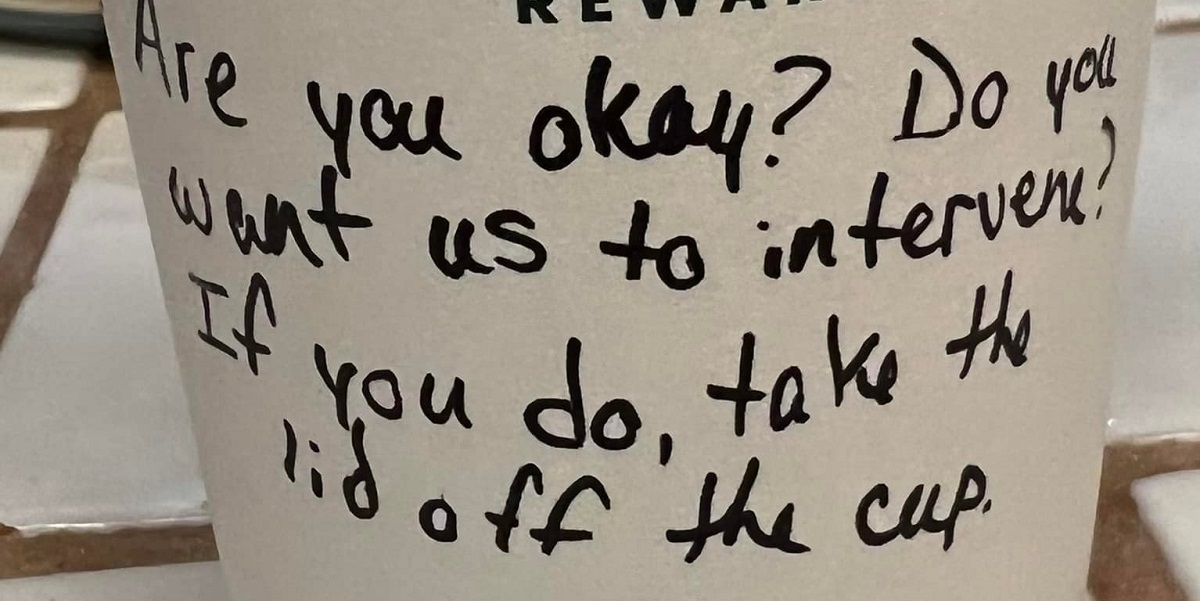 Are you okay? Do you
want us to intervene?
If you do, take the
lid off the cup.